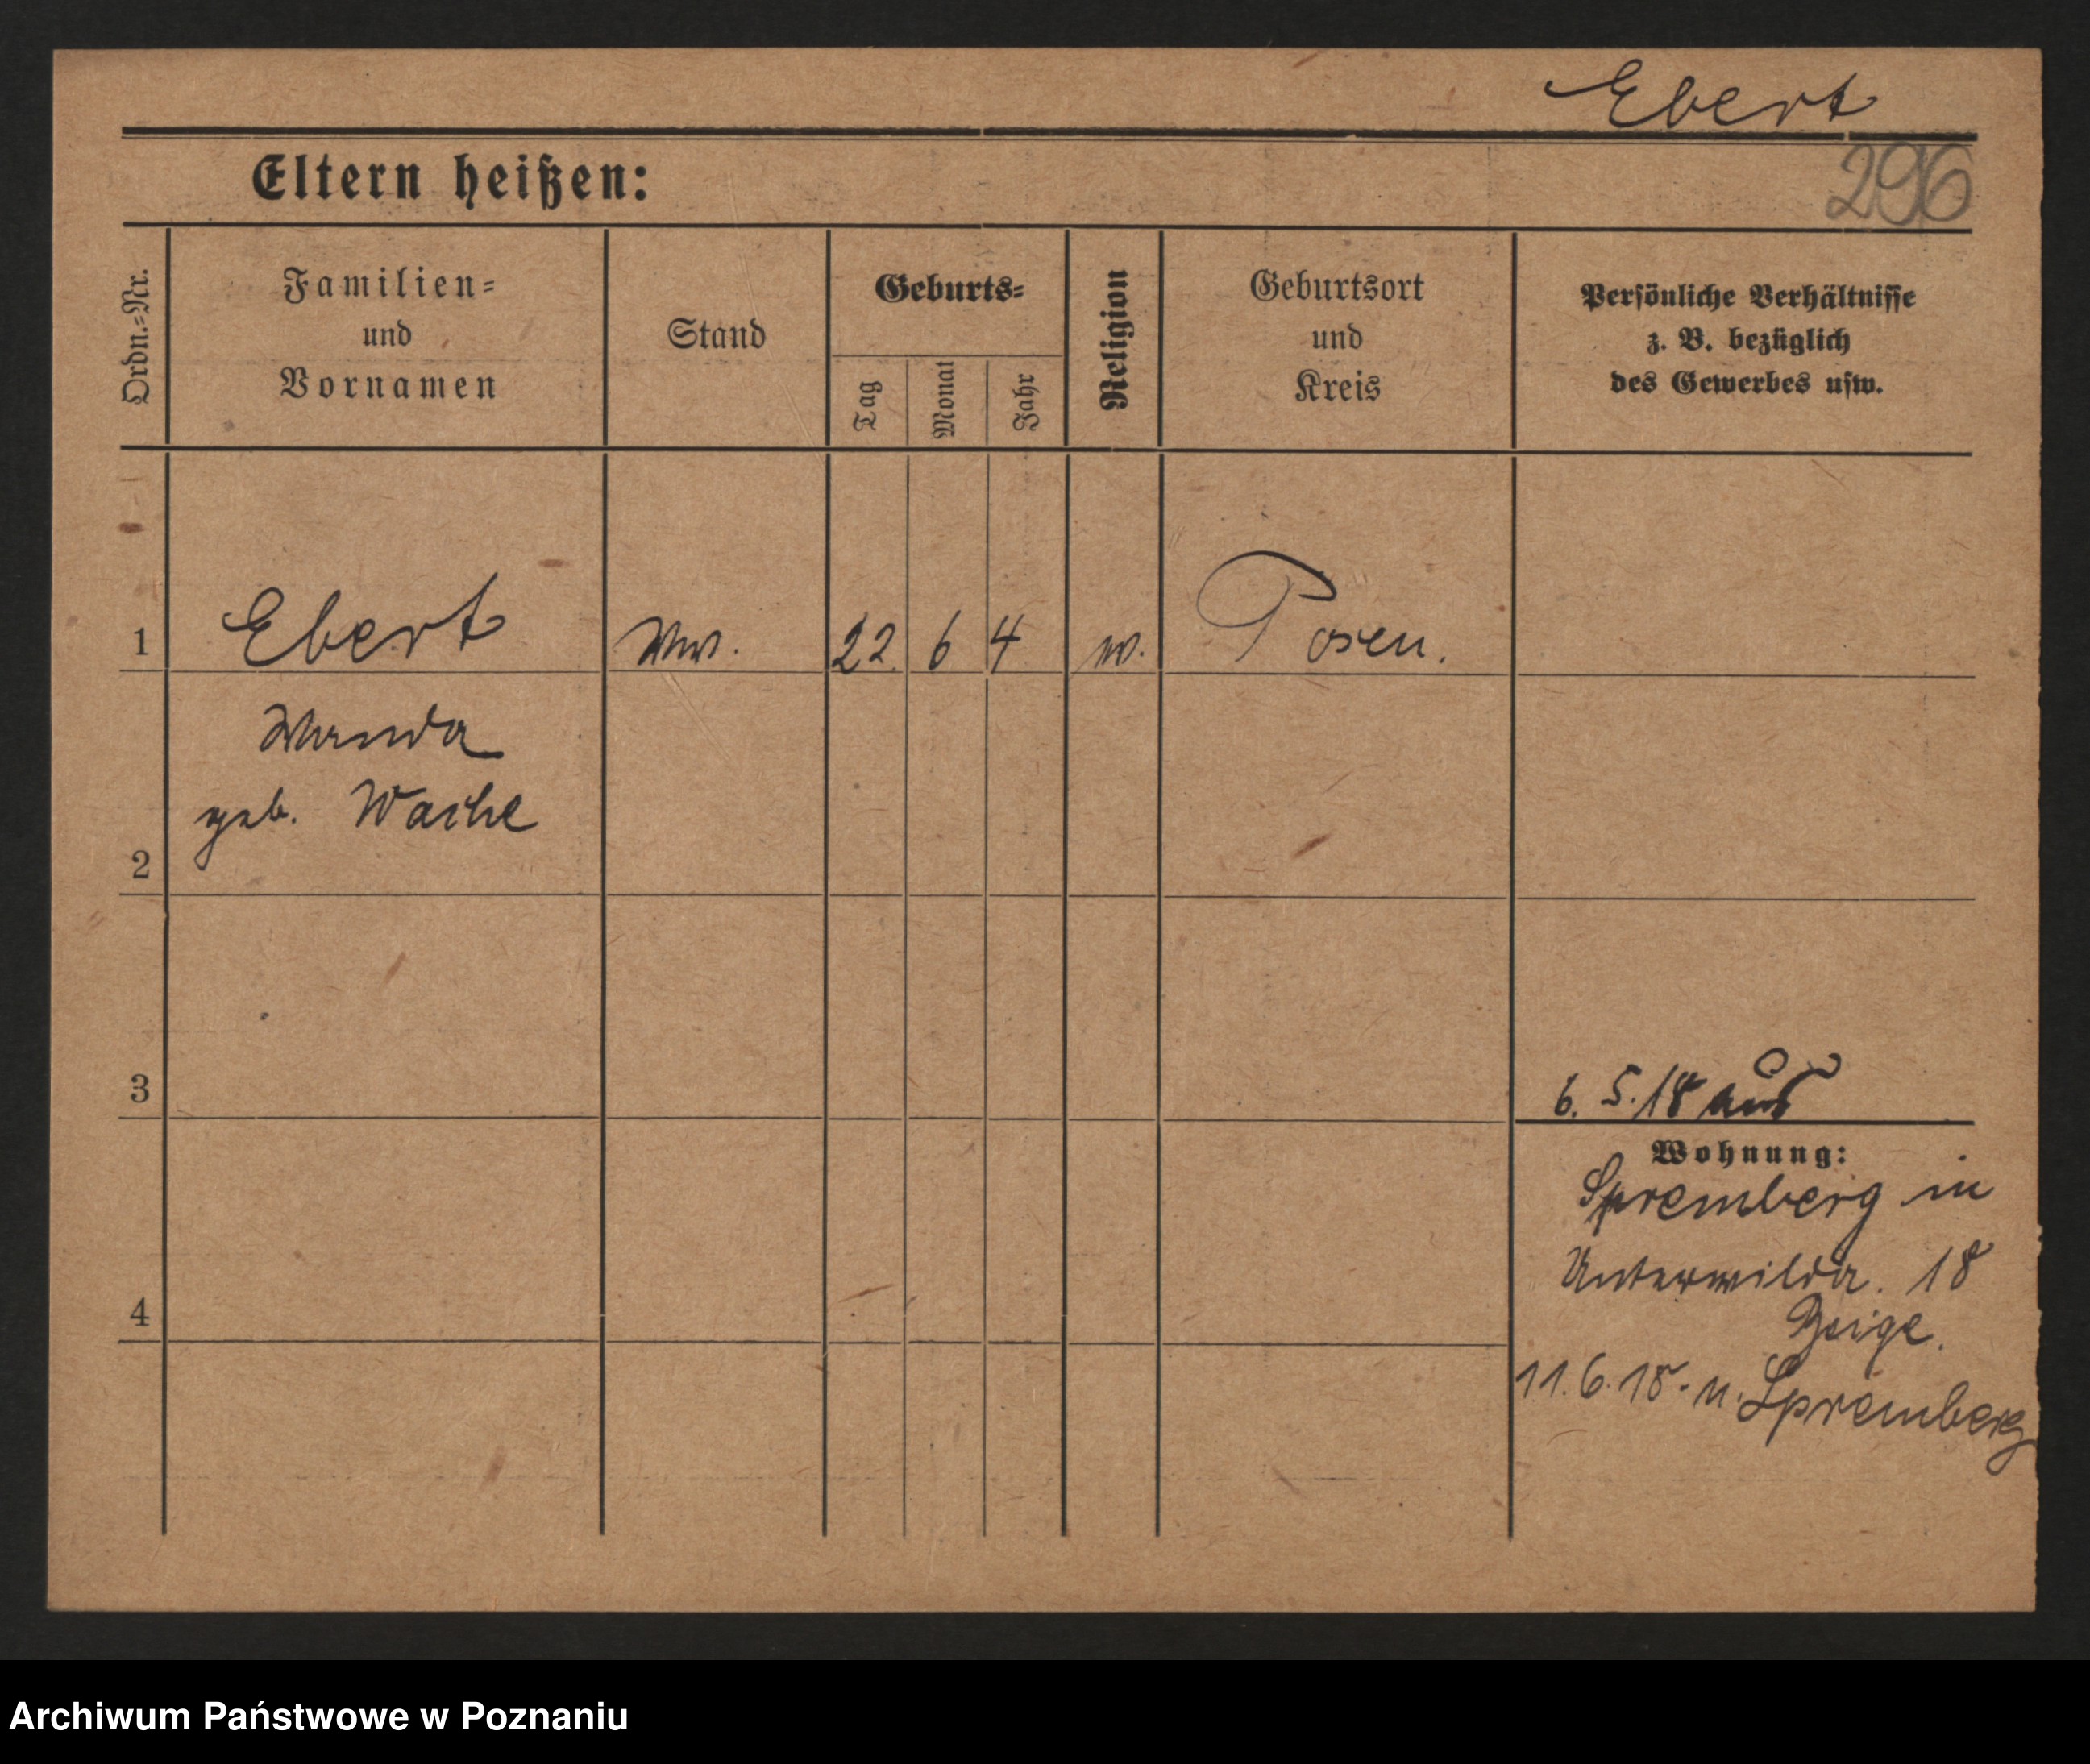 Ebert
Eltern heißen:
296
Ordn.=Nr.
Familien=
und
Vornamen
Stand
Geburts=
Tag
Monat
Jahr
Religion
Geburtsort
und
Kreis
Persönliche Verhältnisse
z. B. bezüglich
des Gewerbes usw.
1
Ebert
Ww.
22.
6
4
Posen.
Wanda
geb. Wache
2
3
6. 5. 18 aus
Wohnung:
Spremberg in
Unterwilda. 18
4
11. 6. 18. n. Spremberg
Archiwum Państwowe w Poznaniu